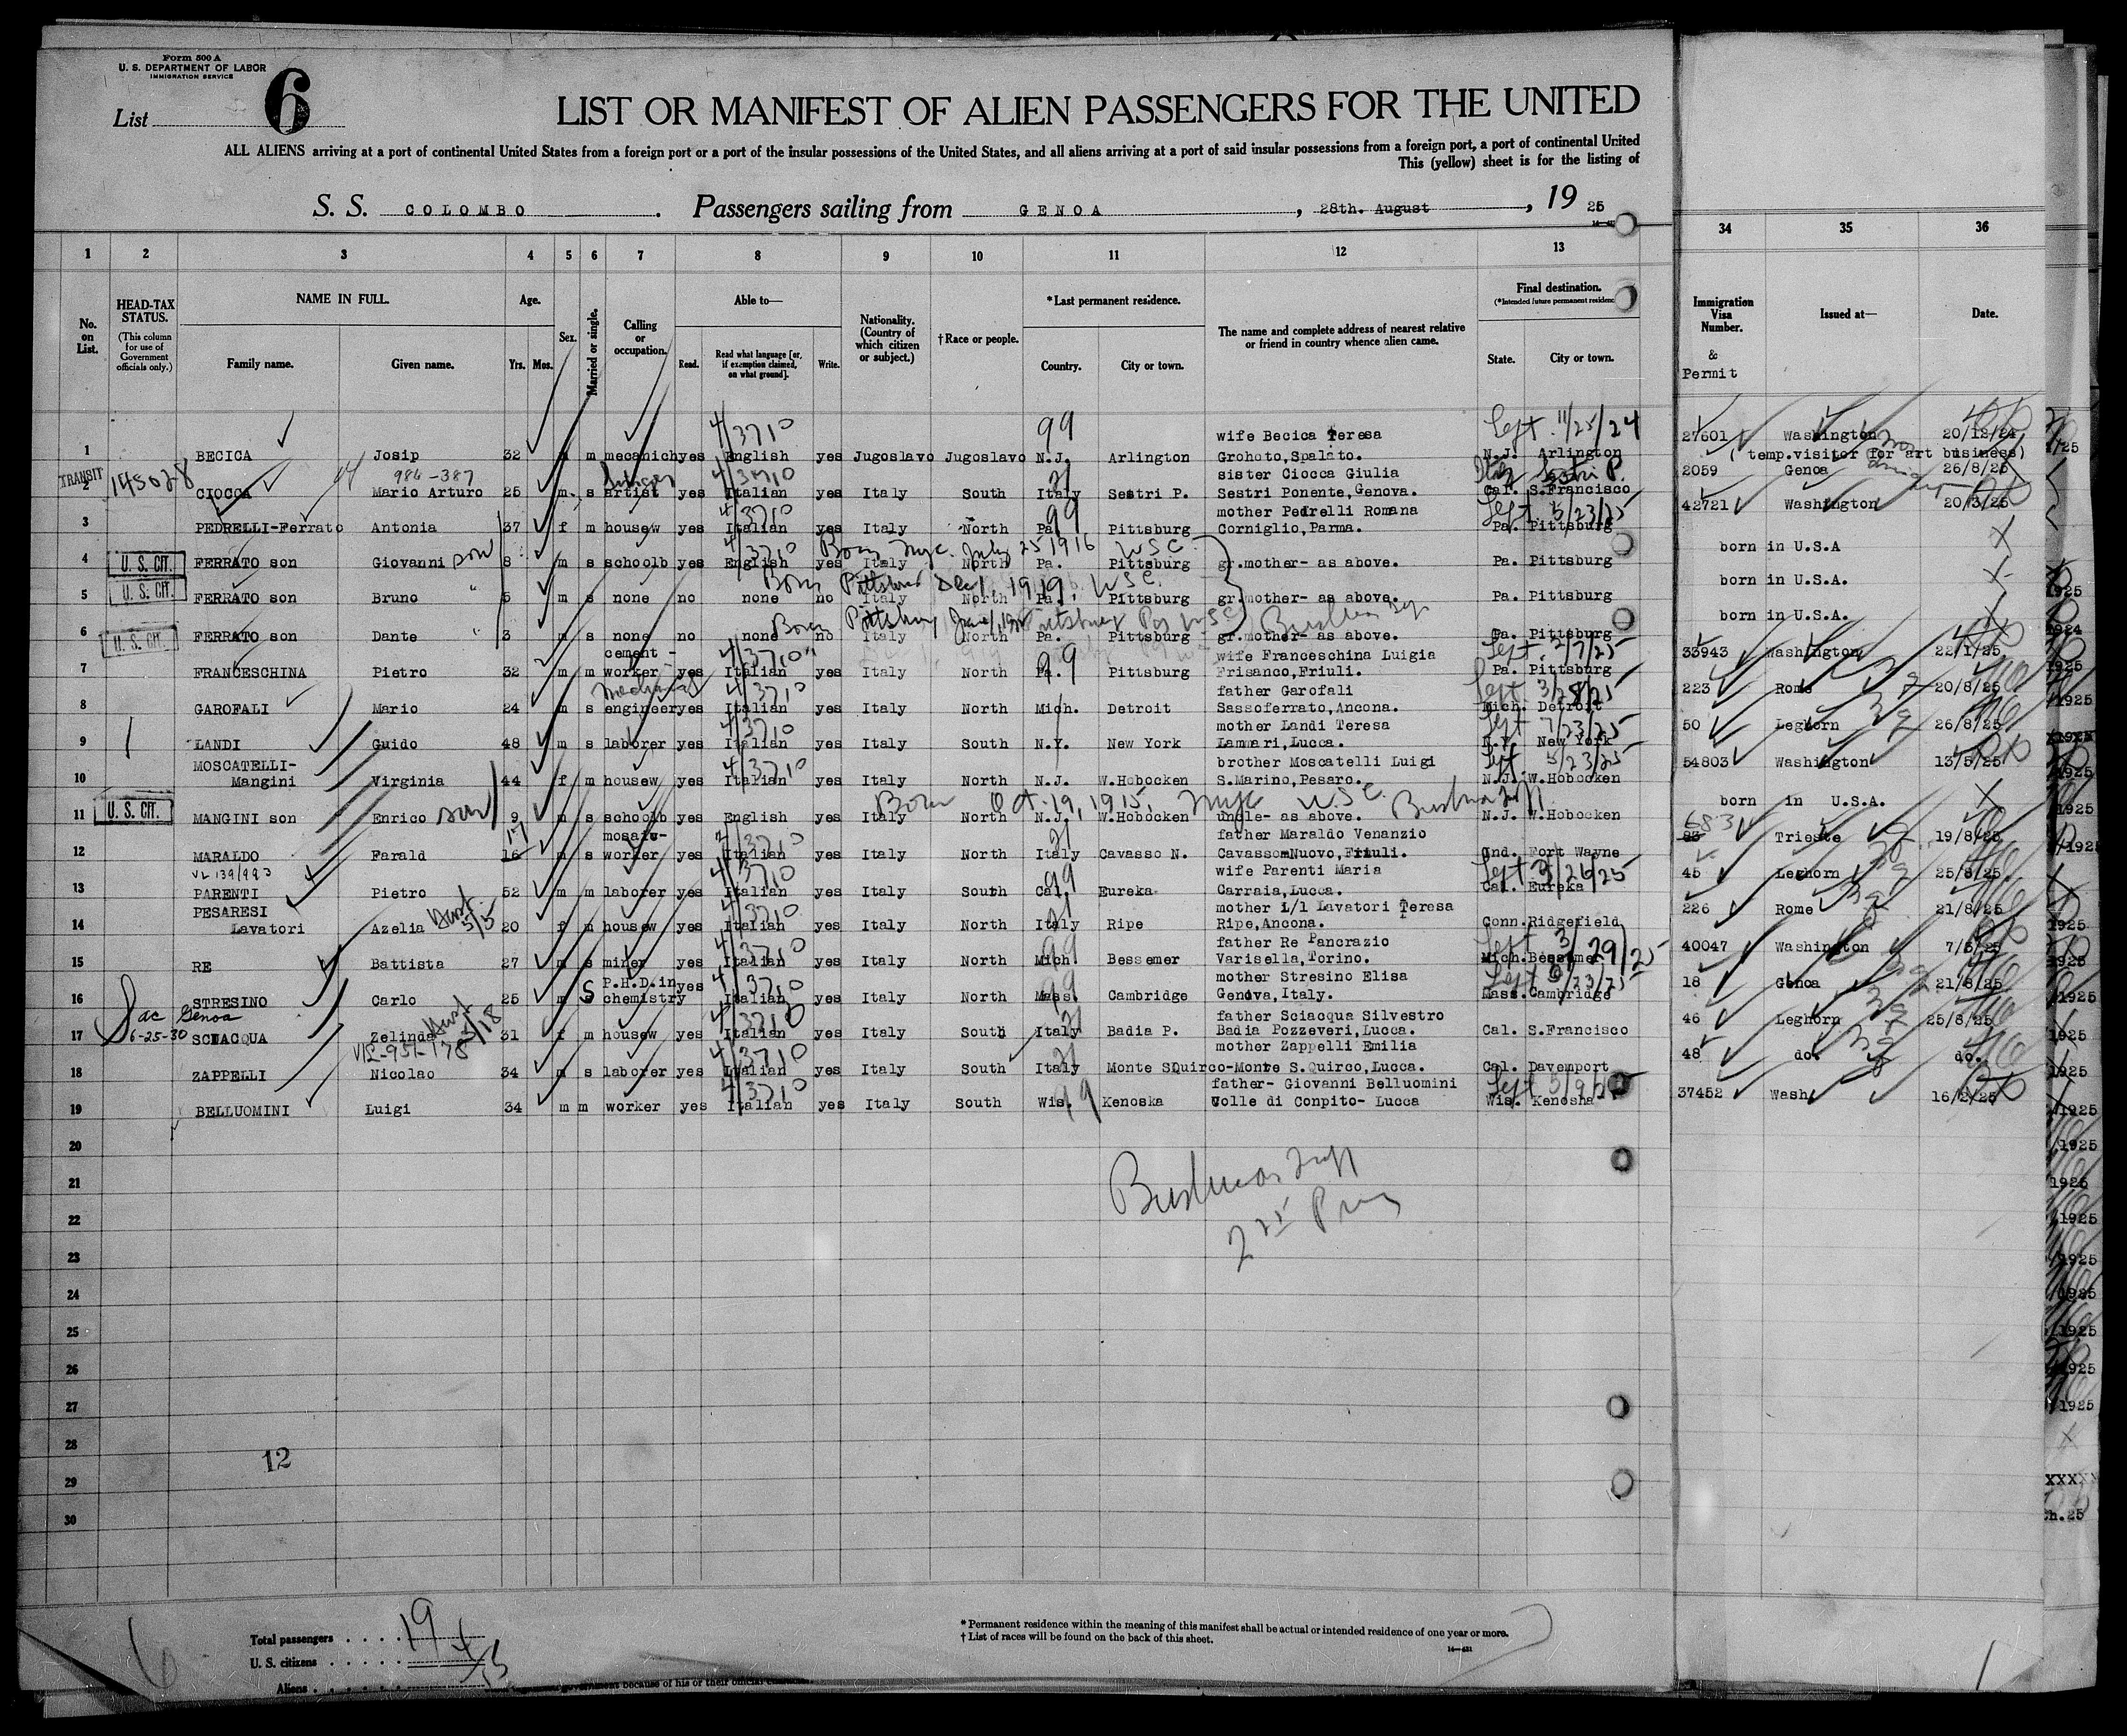 Form 500 A
U. S. DEPARTMENT OF LABOR
IMMIGRATION SERVICE
List 6
LIST OR MANIFEST OF ALIEN PASSENGERS FOR THE UNITED
ALL ALIENS arriving at a port of continental United States from a foreign port or a port of the insular possessions of the United States, and all aliens arriving at a port of said insular possessions from a foreign port, a port of continental United
This (yellow) sheet is for the listing of
S. S. COLOMBO. Passengers sailing from GENOA, 28th. August, 19 25
1 2 3 4 5 6 7 8 9 10 11 12 13 34 35 36
No. on List. HEAD-TAX STATUS. (This column for use of Government officials only.) NAME IN FULL. Family name. Given name. Age. Yrs. Mos. Sex. Married or single. Calling or occupation. Able to— Read. Read what language [or, if exemption claimed, on what ground]. Write. Nationality. (Country of which citizen or subject.) †Race or people. *Last permanent residence. Country. City or town. The name and complete address of nearest relative or friend in country whence alien came. Final destination. (*Intended future permanent residence) State. City or town. Immigration Visa Number. & Permit Issued at— Date.
4/3710 99 wife Becica Teresa Left 11/25/24
1 BECICA Josip 32 m m mecanich yes English yes Jugoslavo Jugoslavo N.J. Arlington Grohoto,Spalato. N.J. Arlington 27601 Washington 20/12/24
TRANSIT 984-387 Singer 4/3710 21 sister Ciocca Giulia Italy Sestri P. ( temp.visitor for art business)
2 145028 CIOCCA Mario Arturo 25 m s artist yes Italian yes Italy South Italy Sestri P. Sestri Ponente,Genova. Cal. S.Francisco 2059 Genoa 26/8/25
4/3710 99 mother Pedrelli Romana Left 5/23/25
3 PEDRELLI-Ferrato Antonia 37 f m housew yes Italian yes Italy North Pa. Pittsburg Corniglio,Parma. Pa. Pittsburg 42721 Washington 20/3/25
4/3710 Born Nyc. July 25 1916 USC
4 U. S. CIT. FERRATO son Giovanni son 8 m s schoolb yes English yes Italy North Pa. Pittsburg gr.mother- as above. Pa. Pittsburg born in U.S.A
Born Pittsburg Dec 1, 1919, USC.
5 U. S. CIT. FERRATO son Bruno " 5 m s none no none no Italy North Pa. Pittsburg gr.mother- as above. Pa. Pittsburg born in U.S.A.
Born Pittsburg Pittsburg Pa USC
6 U. S. CIT. FERRATO son Dante " 3 m s none no none no Italy North Pa. Pittsburg gr.mother- as above. Pa. Pittsburg born in U.S.A.
cement - 4/3710 99 wife Franceschina Luigia Left 2/7/25
7 FRANCESCHINA Pietro 32 m m worker yes Italian yes Italy North Pa. Pittsburg Frisanco,Friuli. Pa. Pittsburg 33943 Washington 22/1/25
Mechanical 4/3710 father Garofali Left 3/28/25
8 GAROFALI Mario 24 m s engineer yes Italian yes Italy North Mich. Detroit Sassoferrato,Ancona. Mich. Detroit 223 Rome 20/8/25
4/3710 mother Landi Teresa Left 7/23/25
9 LANDI Guido 48 m s laborer yes Italian yes Italy South N.Y. New York Lammari,Lucca. N.Y. New York 50 Leghorn 26/8/25
MOSCATELLI- 4/3710 brother Moscatelli Luigi Left 5/23/25
10 Mangini Virginia 44 f m housew yes Italian yes Italy North N.J. W.Hobocken S.Marino,Pesaro. N.J. W.Hobocken 54803 Washington 13/5/25
Born Oct. 19, 1915, Nyc U.S.C.
11 U. S. CIT. MANGINI son Enrico son 9 m s schoolb yes English yes Italy North N.J. W.Hobocken uncle- as above. N.J. W.Hobocken born in U.S.A.
17 mosaic- 4/3710 21 father Maraldo Venanzio 683
12 MARALDO Farald 16 m s worker yes Italian yes Italy North Italy Cavasso N. Cavasso Nuovo,Friuli. Ind. Fort Wayne 83 Trieste 19/8/25
4/3710 99 wife Parenti Maria Left 3/26/25
13 PARENTI Pietro 52 m m laborer yes Italian yes Italy South Cal. Eureka Carraia,Lucca. Cal. Eureka 45 Leghorn 25/8/25.
PESARESI 4/3710 21 mother i/l Lavatori Teresa
14 Lavatori Azelia 20 f m housew yes Italian yes Italy North Italy Ripe Ripe,Ancona. Conn. Ridgefield 226 Rome 21/8/25
4/3710 99 father Re Pancrazio Left 3/29/25
15 RE Battista 27 m s miner yes Italian yes Italy North Mich. Bessemer Varisella,Torino. Mich. Bessemer 40047 Washington 7/5/25
P.H.D.in yes 4/3710 99 mother Stresino Elisa Left
16 STRESINO Carlo 25 m s chemistry Italian yes Italy North Mass. Cambridge Genova,Italy. Mass. Cambridge 18 Genoa 21/8/25
Genoa 4/3710 21 father Sciacqua Silvestro
17 6-25-30 SCIACQUA Zelinda 31 f m housew yes Italian yes Italy South Italy Badia P. Badia Pozzeveri,Lucca. Cal. S.Francisco 46 Leghorn 25/8/25
4/3710 21 mother Zappelli Emilia
18 ZAPPELLI Nicolao 34 m s laborer yes Italian yes Italy South Italy Monte SQuirco-Monte S.Quirco,Lucca. Cal. Davemport 48 do. do.
4/3710 father- Giovanni Belluomini Left
19 BELLUOMINI Luigi 34 m m worker yes Italian yes Italy South Wis. 99 Kenoska Colle di Conpito- Lucca Wis. Kenosha 37452 Wash. 16/2/25
20
21
22
23
24
25
26
27
28
12
29
30
Total passengers . . . . 19
U. S. citizens . . . . . 4
Aliens . . . . . . 15
* Permanent residence within the meaning of this manifest shall be actual or intended residence of one year or more.
† List of races will be found on the back of this sheet.